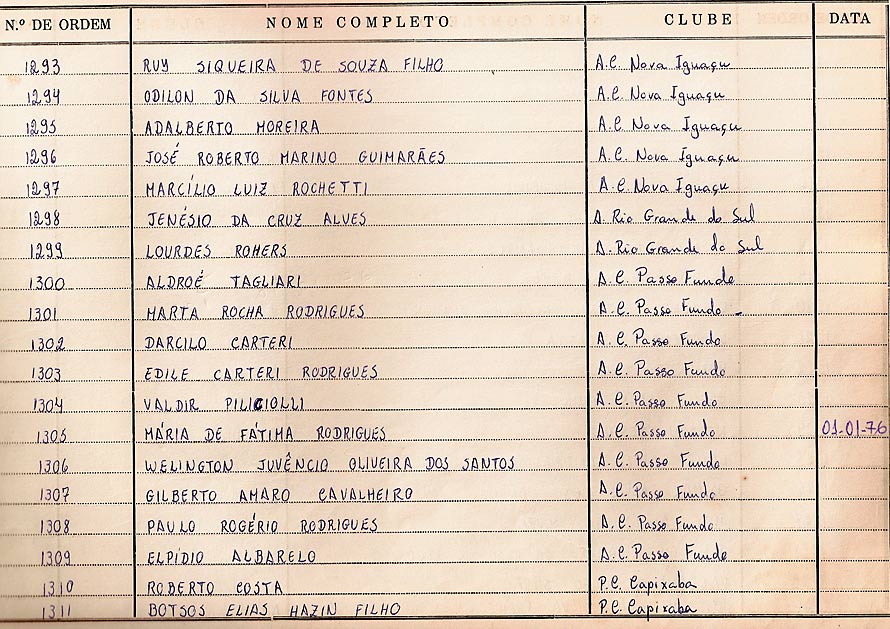 N.º DE ORDEM NOME COMPLETO CLUBE DATA
1293 RUY SIQUEIRA DE SOUZA FILHO A.C. Nova Iguaçu
1294 ODILON DA SILVA FONTES A.C. Nova Iguaçu
1295 ADALBERTO MOREIRA A.C. Nova Iguaçu
1296 JOSÉ ROBERTO MARINO GUIMARÃES A.C. Nova Iguaçu
1297 MARCÍLIO LUIZ ROCHETTI A.C. Nova Iguaçu
1298 JENÉSIO DA CRUZ ALVES A. Rio Grande do Sul
1299 LOURDES ROHERS A. Rio Grande do Sul
1300 ALDROÉ TAGLIARI A.C. Passo Fundo
1301 MARTA ROCHA RODRIGUES A.C. Passo Fundo
1302 DARCILO CARTERI A.C. Passo Fundo
1303 EDILE CARTERI RODRIGUES A.C. Passo Fundo
1304 VALDIR PILICIOLLI A.C. Passo Fundo
1305 MÁRIA DE FÁTIMA RODRIGUES A.C. Passo Fundo 01-01-76
1306 WELINGTON JUVÊNCIO OLIVEIRA DOS SANTOS A.C. Passo Fundo
1307 GILBERTO AMARO CAVALHEIRO A.C. Passo Fundo
1308 PAULO ROGÉRIO RODRIGUES A.C. Passo Fundo
1309 ELPÍDIO ALBARELO A.C. Passo Fundo
1310 ROBERTO COSTA P.C. Capixaba
1311 BOTSOS ELIAS HAZIN FILHO P.C. Capixaba